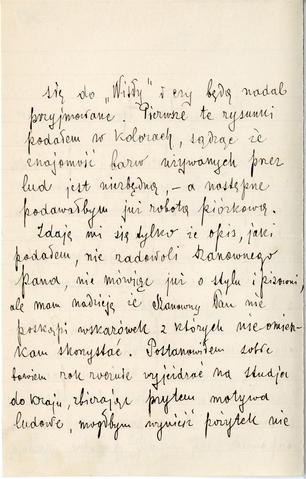 się do „Wisły" i czy będą nadal
przyjmowane. Pierwsze te rysunki
podałem w kolorach, sądząc że
znajomość barw używanych przez
lud jest niezbędną, - a następne
podawałbym już robotą piórkową.
Zdaję mi się tylko że opis, jaki
podałem, nie zadowoli Szanownego
Pana, nie mówiąc już o stylu i pisowni,
ale mam nadzieję że Szanowny Pan nie
poskąpi wskazówek z których nie omiesz-
kam skorzystać. Postanowiłem sobie
bowiem rok rocznie wyjeżdżać na studja
do kraju, zbierając przytem motywa
ludowe, mógłbym wynieść pożytek nie